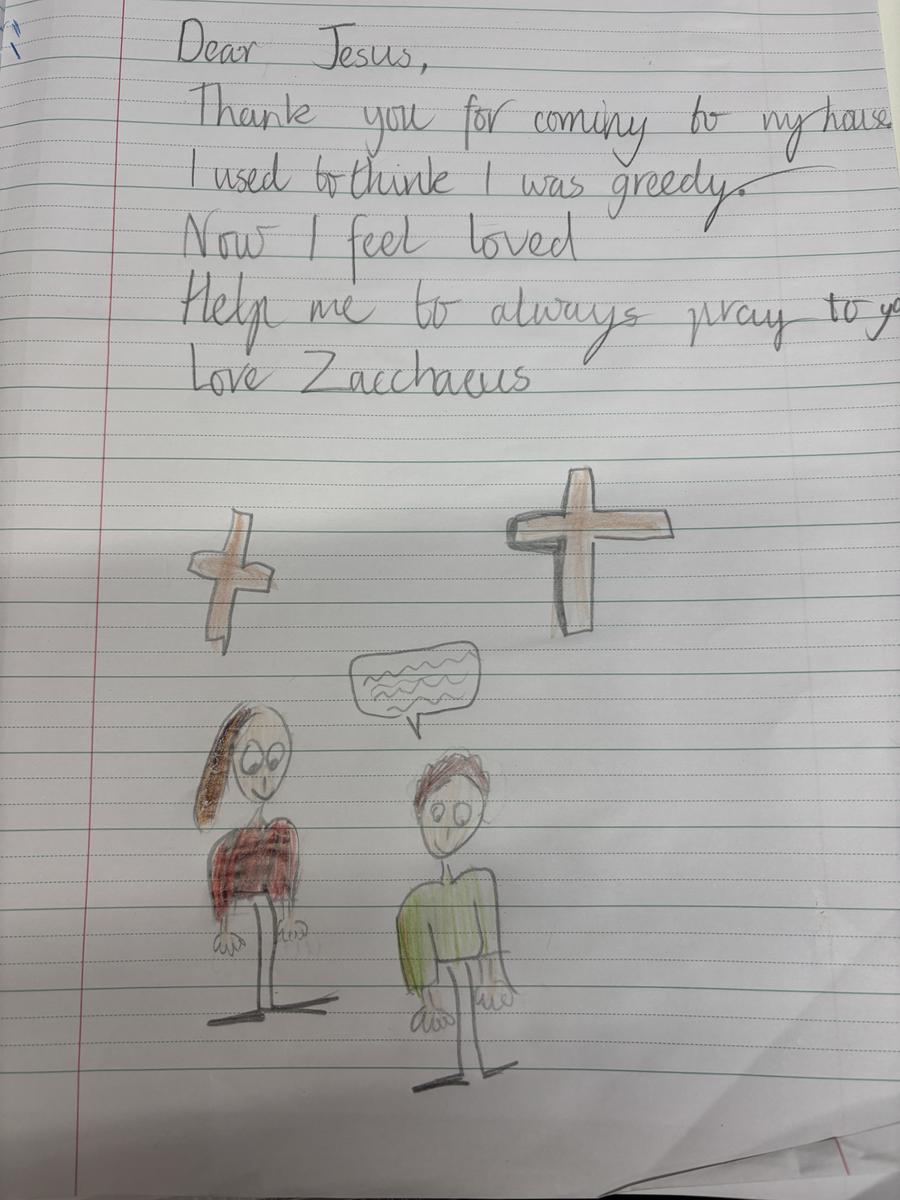 Dear Jesus,
Thank you for coming to my house
I used to think I was greedy.
Now I feel loved
Help me to always pray to yo
Love Zacchaeus